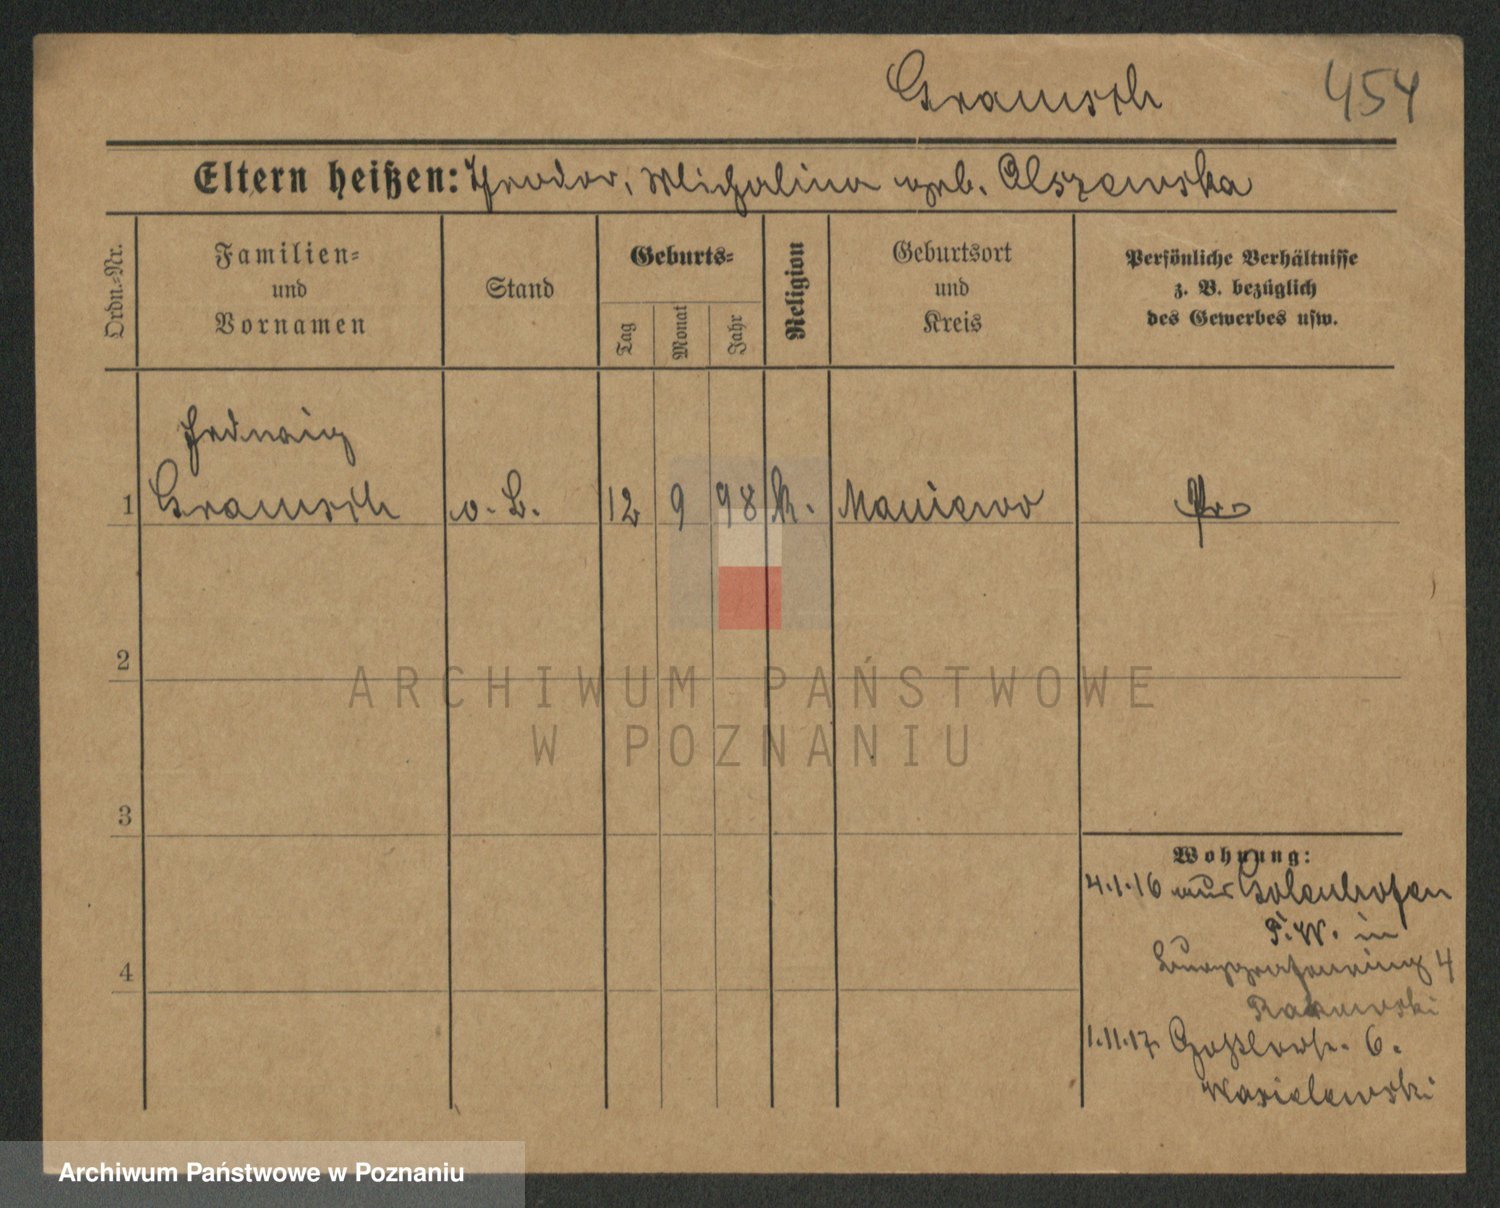 Gramsch 454
Eltern heißen: Theodor, Michalina geb. Olszewska
Ordn.-Nr.
Familien- und Vornamen
Stand
Geburts-
Tag
Monat
Jahr
Religion
Geburtsort und Kreis
Persönliche Verhältnisse z. B. bezüglich des Gewerbes usw.
Hedwig
1 Gramsch o. B. 12 9 98 k. Maniewo Pr.
2
3
4
Wohnung:
4.1.16 aus Golenhofen
P. W. in
Burggrafenring 4
Rakowski
1.11.17. Goßlerstr. 6.
Wasielewski
ARCHIWUM PAŃSTWOWE
W POZNANIU
Archiwum Państwowe w Poznaniu